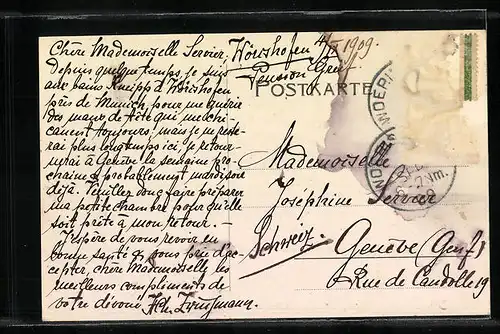 Chère Mademoiselle Servier, Wörishofen 4/II 1909.
Pension Greif
Depuis quelque temps je suis
aux bains Kneipp à Wörishofen
près de Munich pour me guérir
des maux de tête qui me chi-
canent toujours; mais je ne reste-
rai plus longtemps ici, je retour-
nerai à Genève la semaine pro-
chaine & probablement mardi soir
déjà. Veuillez donc faire préparer
ma petite chambre pour qu'elle
soit prête à mon retour.
J'espère de vous revoir en
bonne santé & vous prie d'ac-
cepter, chère Mademoiselle, les
meilleurs compliments de
votre dévoué
POSTKARTE
Mademoiselle
Joséphine Servier
Schweiz.
Genève (Genf)
Rue de Candolle 19